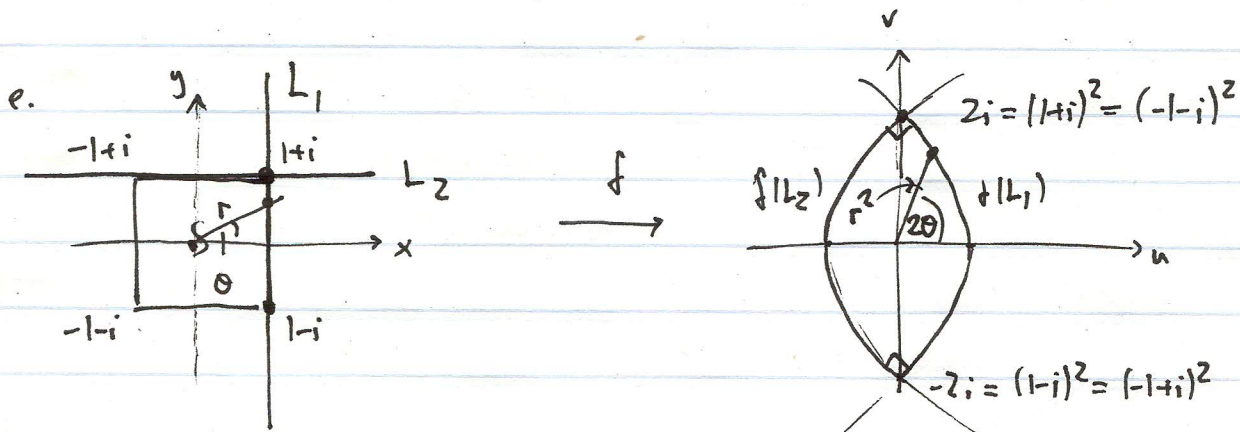 e.
y
L₁
-1+i
1+i
L₂
r
x
θ
-1-i
1-i
f
v
2i = (1+i)² = (-1-i)²
f(L₂)
r²
f(L₁)
2θ
u
-2i = (1-i)² = (-1+i)²